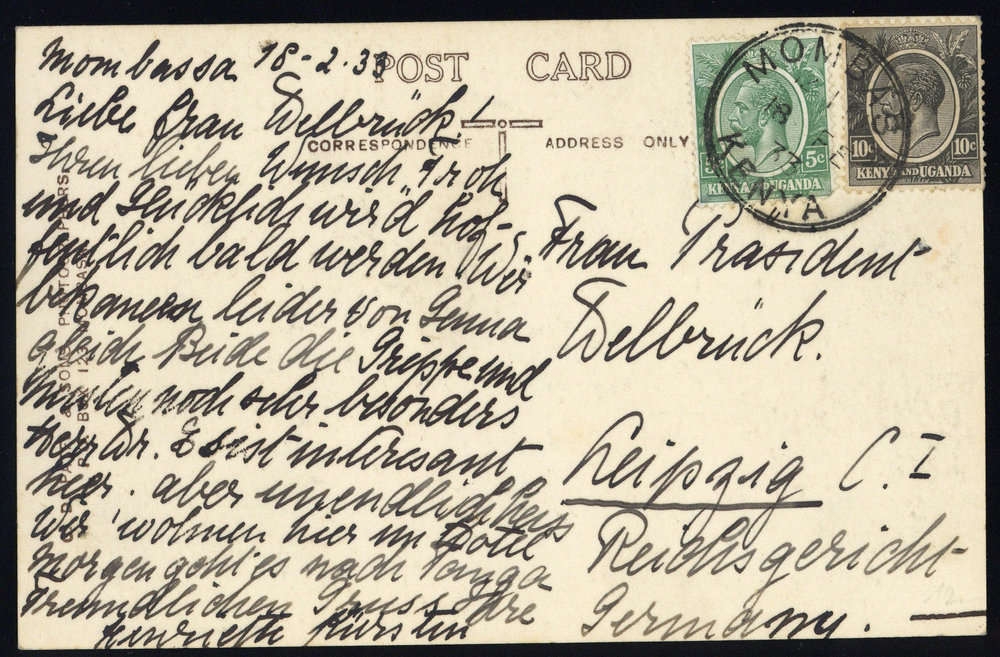 Mombassa 18-2.33
POST CARD
Liebe Frau Delbrück!
CORRESPONDENCE
ADDRESS ONLY
Ihren lieben Wunsch "Froh
und Glücklich wird hof-
fentlich bald werden Wir
bekamen leider von Genua
gleich Beide die Grippe und
husten noch sehr besonders
Herr Dr. Es ist interesant
hier. aber unendlich heiss
wir wohnen hier im Hotel
Morgen geht es nach Tanga
Freundlichen Gruss Ihre
Henriette Kirsten
Frau Präsident
Delbrück.
Leipzig C. I
Reichsgericht
Germany.
MOMBASA
KENYA
5c 5c
KENYA AND UGANDA
10c 10c
KENYA AND UGANDA